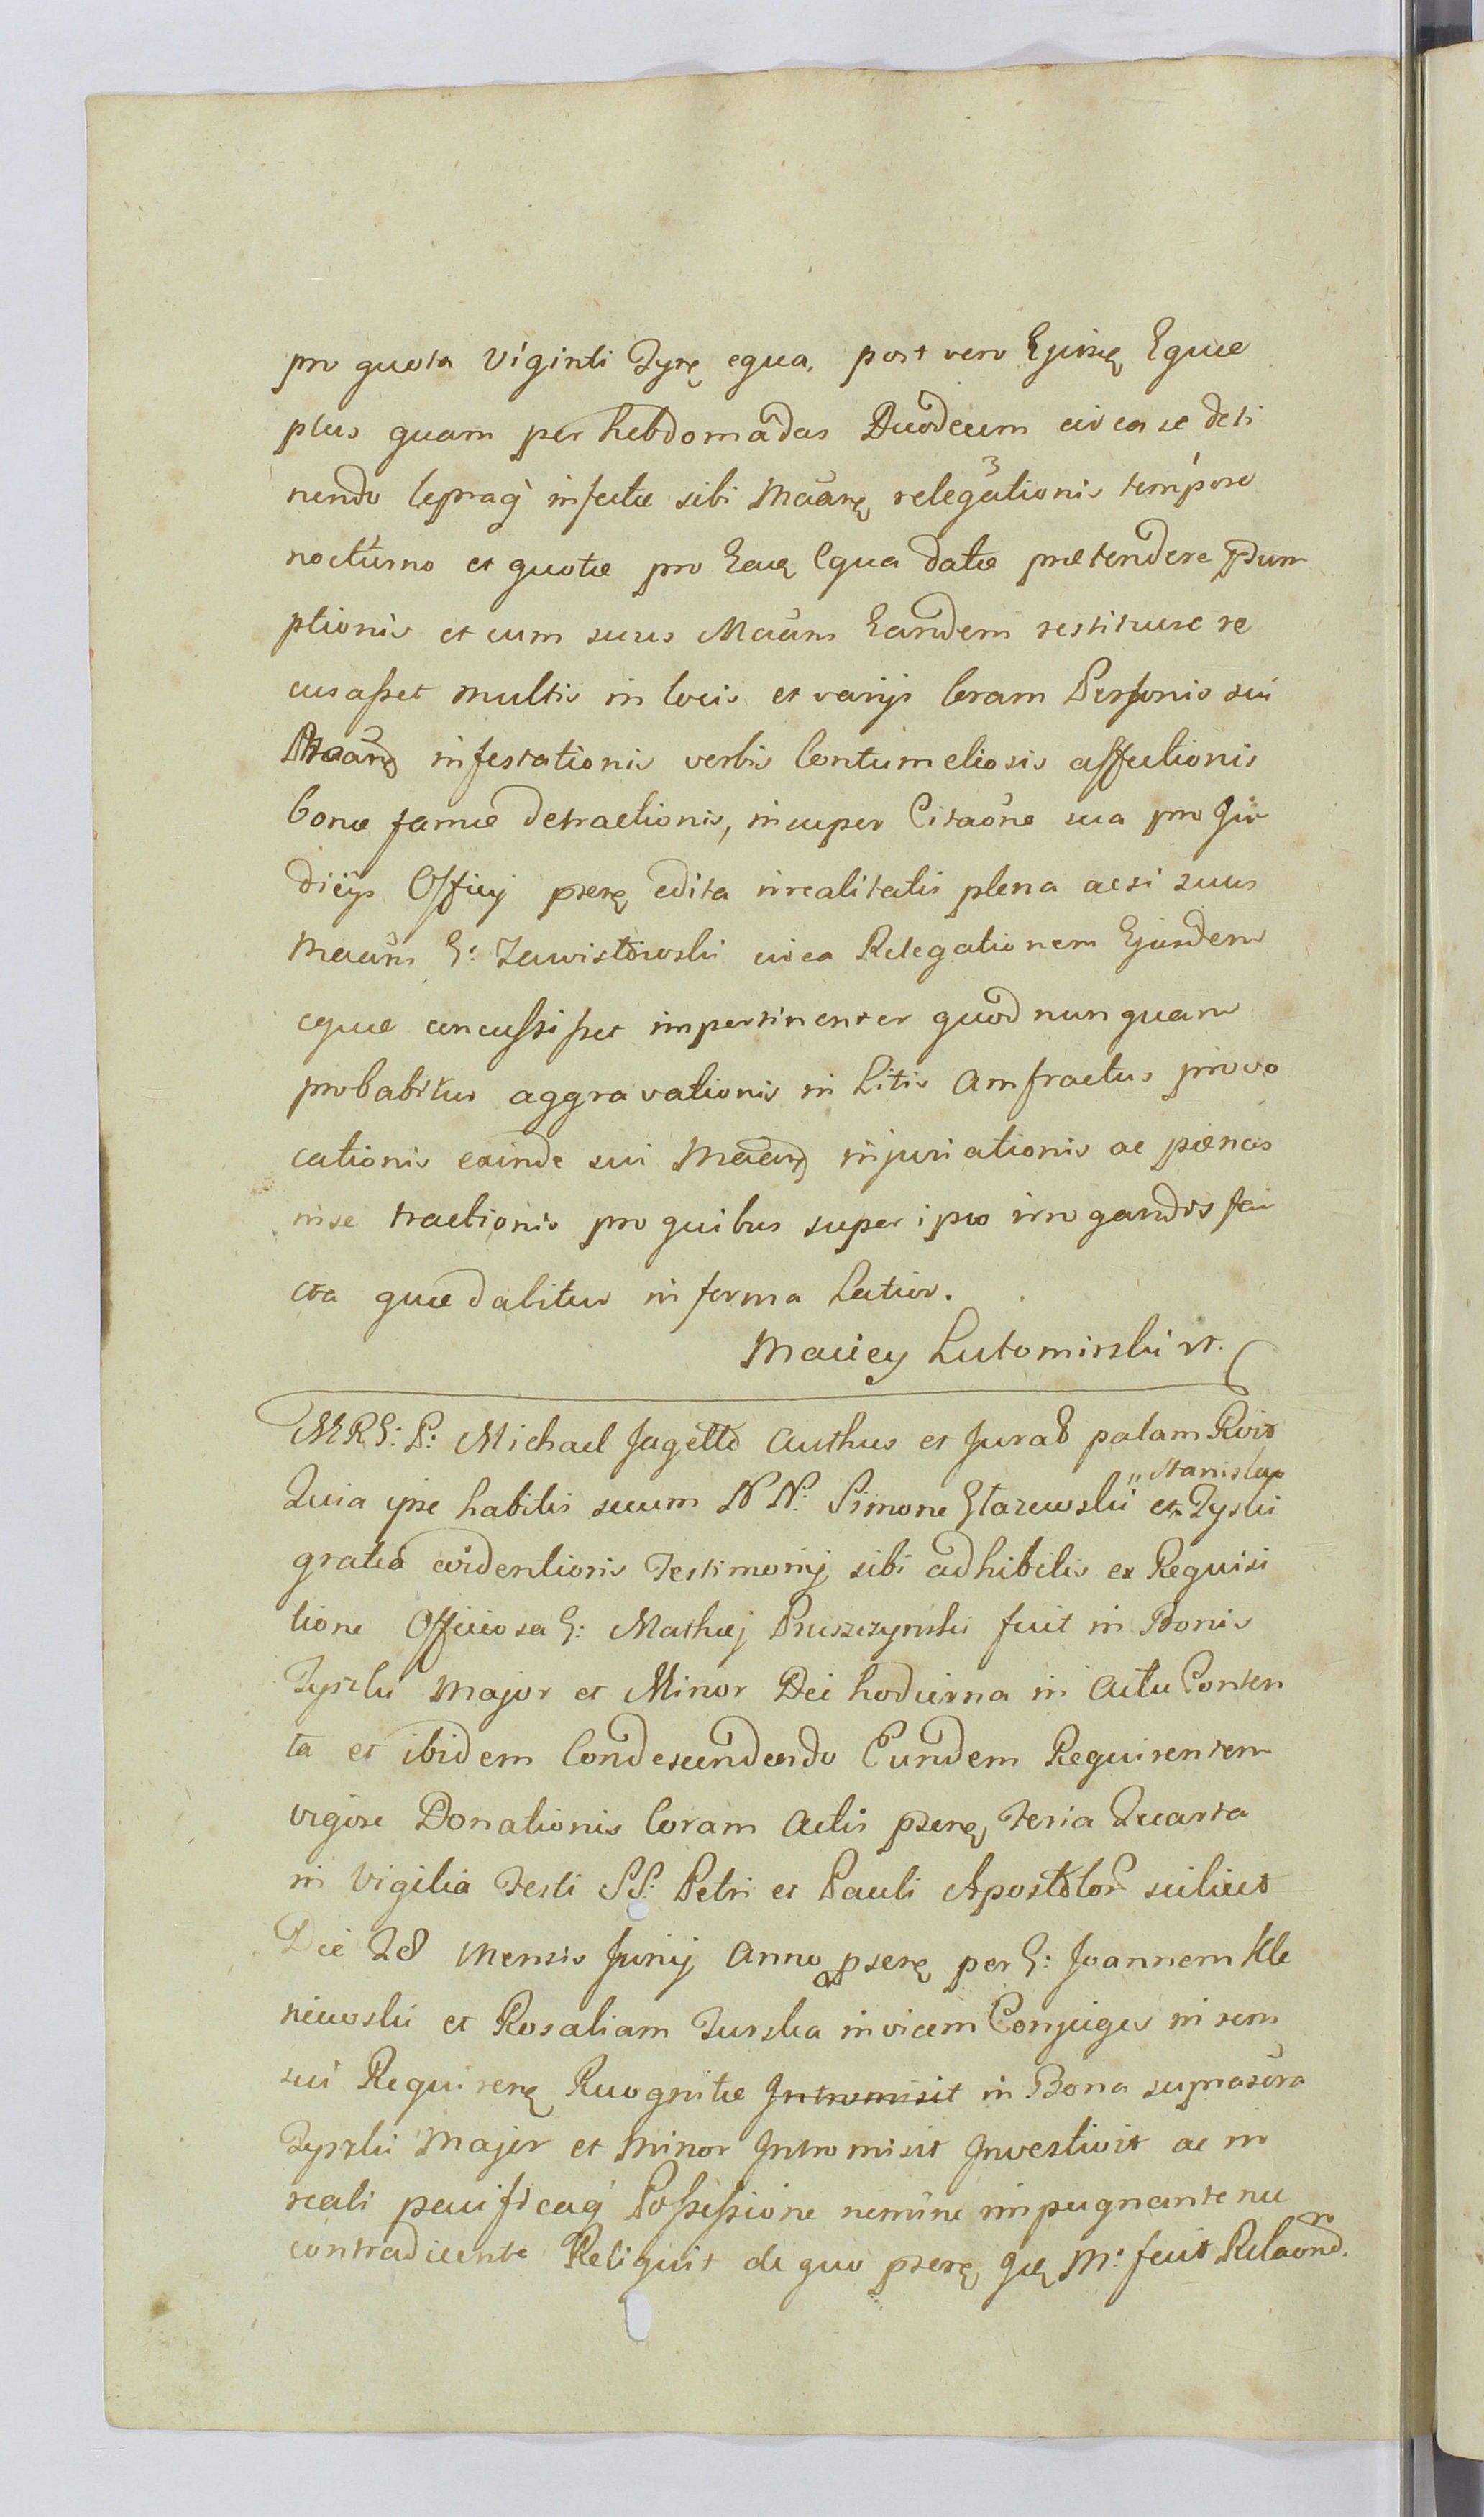 pro quota Viginti Tyrę equa, post vero Ejusdę Equæ
plus quam per hebdomadas Duodecim circa se deti
nendo lepraq infectæ sibi Maanę relegationis tempore
nocturno et quotæ pro Eaę Equa datæ prætendere
ptionis et cum suus Maans Eandem restituere re
cusasset multis in locis et varijs Coram Personis sui
Maans infestationis verbis Contumeliosis affectionis
bonæ famæ detractionis, insuper Citaõne sua pro Ju
dicijs Officij pserę edita irrealitatis plena acsi suus
Maans G: Zawistowski circa Relegationem Ejusdem
equæ concussisset impertinenter quod nunquam
probabitur aggravationis in Litis Amfractus provo
cationis exinde sui Maans injuriationis ac pœnas
in se tractionis pro quibus super ipso irrogandis fa
cta quæ dabitur in forma Latior.
Maciey Lutomirski vt.
MRG: P: Michael Jagełło Authus et Jurat palam Rvit
Quia ipse habitis secum NN: Simone Głazewski " Stanislao
et Zyski
gratia evidentioris Testimonij sibi adhibitis ex Requisi
tione Officiosa G: Mathæj Pruszczynski fuit in Bonis
Zyszki Major et Minor Die hodierna in Actu Conten
ta et ibidem Condescendendo Eundem Requirentem
vigore Donationis Coram Actis pserę Feria Quarta
in Vigilia Festi SS: Petri et Pauli Apostolor scilicet
Die 28 Mensis Junij Anno pserę per G: Joannem Kle
niewski et Rosaliam Turska invicem Conjuges in rem
sui Requirenę Recognitæ Intromisit in Bona suprascra
Zyszki Major et Minor Intromisit Investivit ac in
reali pacificaq Possessione nemine impugnante nec
contradicente Reliquit de quo pserę Iđę M: fecit Relaonę.